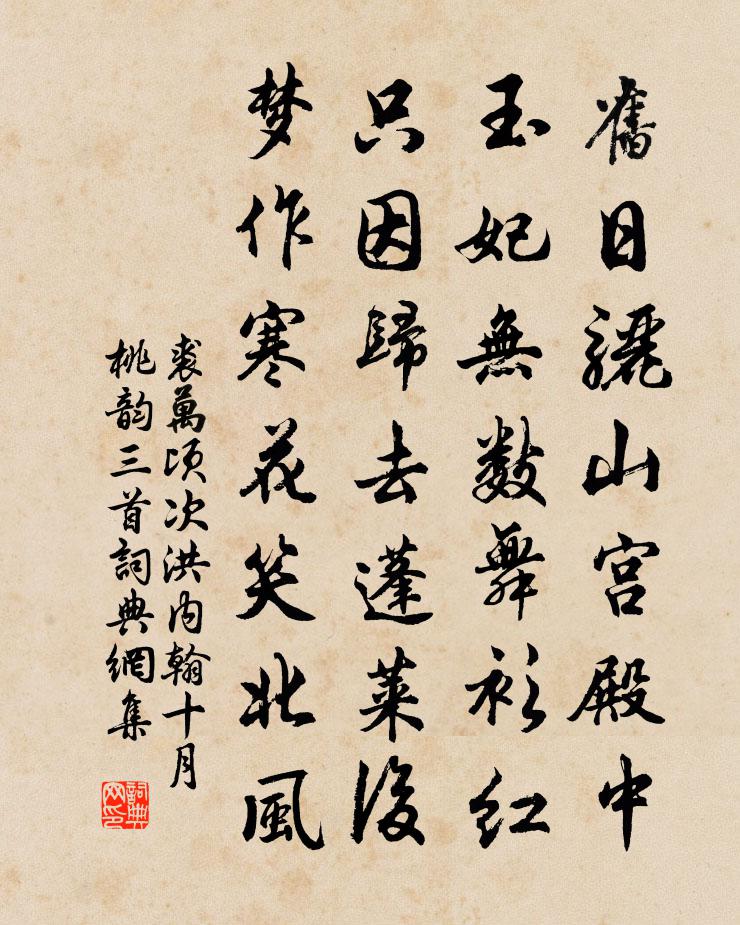 舊日驪山宮殿中
玉妃無數舞衫紅
只因歸去蓬萊後
梦作寒花笑北風
裘萬頃次洪内翰十月
桃韵三首詞典網集
詞典
网印